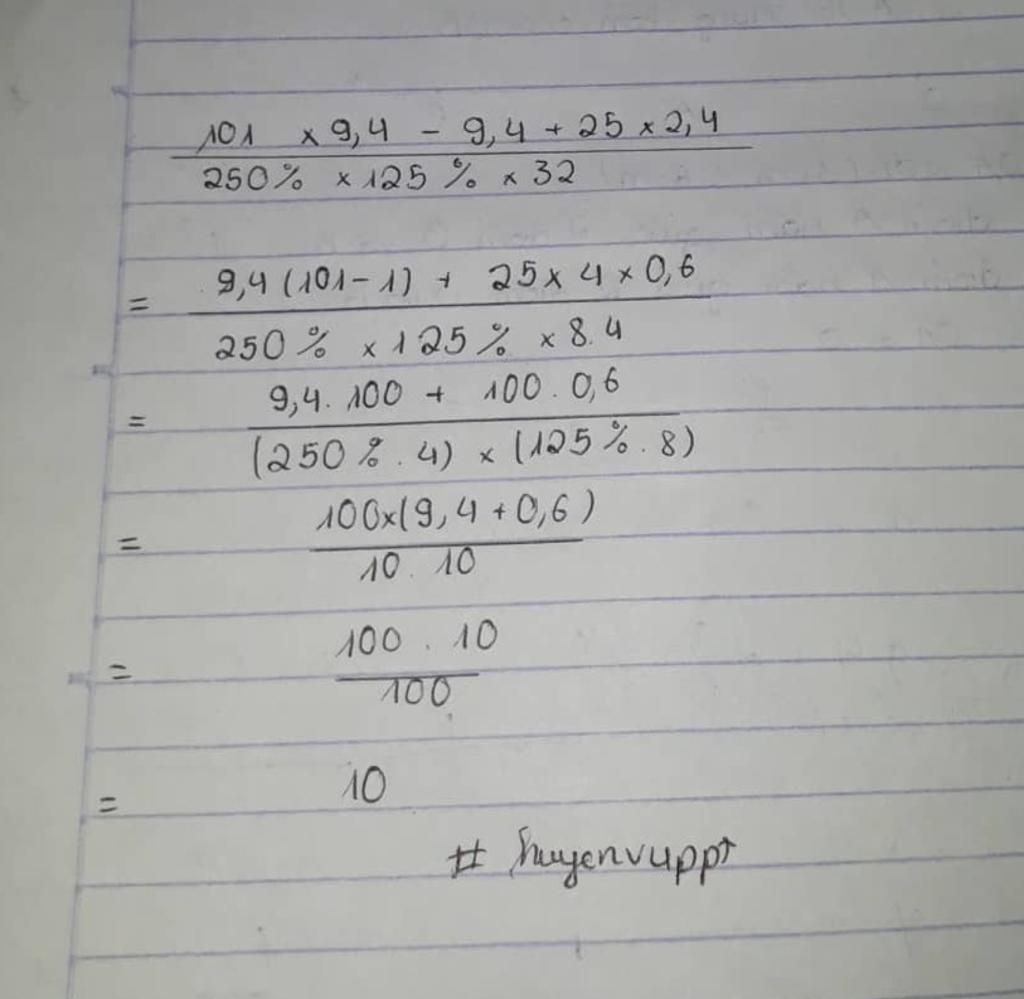 101 × 9,4 - 9,4 + 25 × 2,4
250% × 125% × 32
= 9,4 (101 - 1) + 25 × 4 × 0,6
250% × 125% × 8.4
= 9,4. 100 + 100 . 0,6
(250% . 4) × (125% . 8)
= 100×(9,4 + 0,6)
10. 10
= 100 . 10
100
= 10
# huyenvuppt